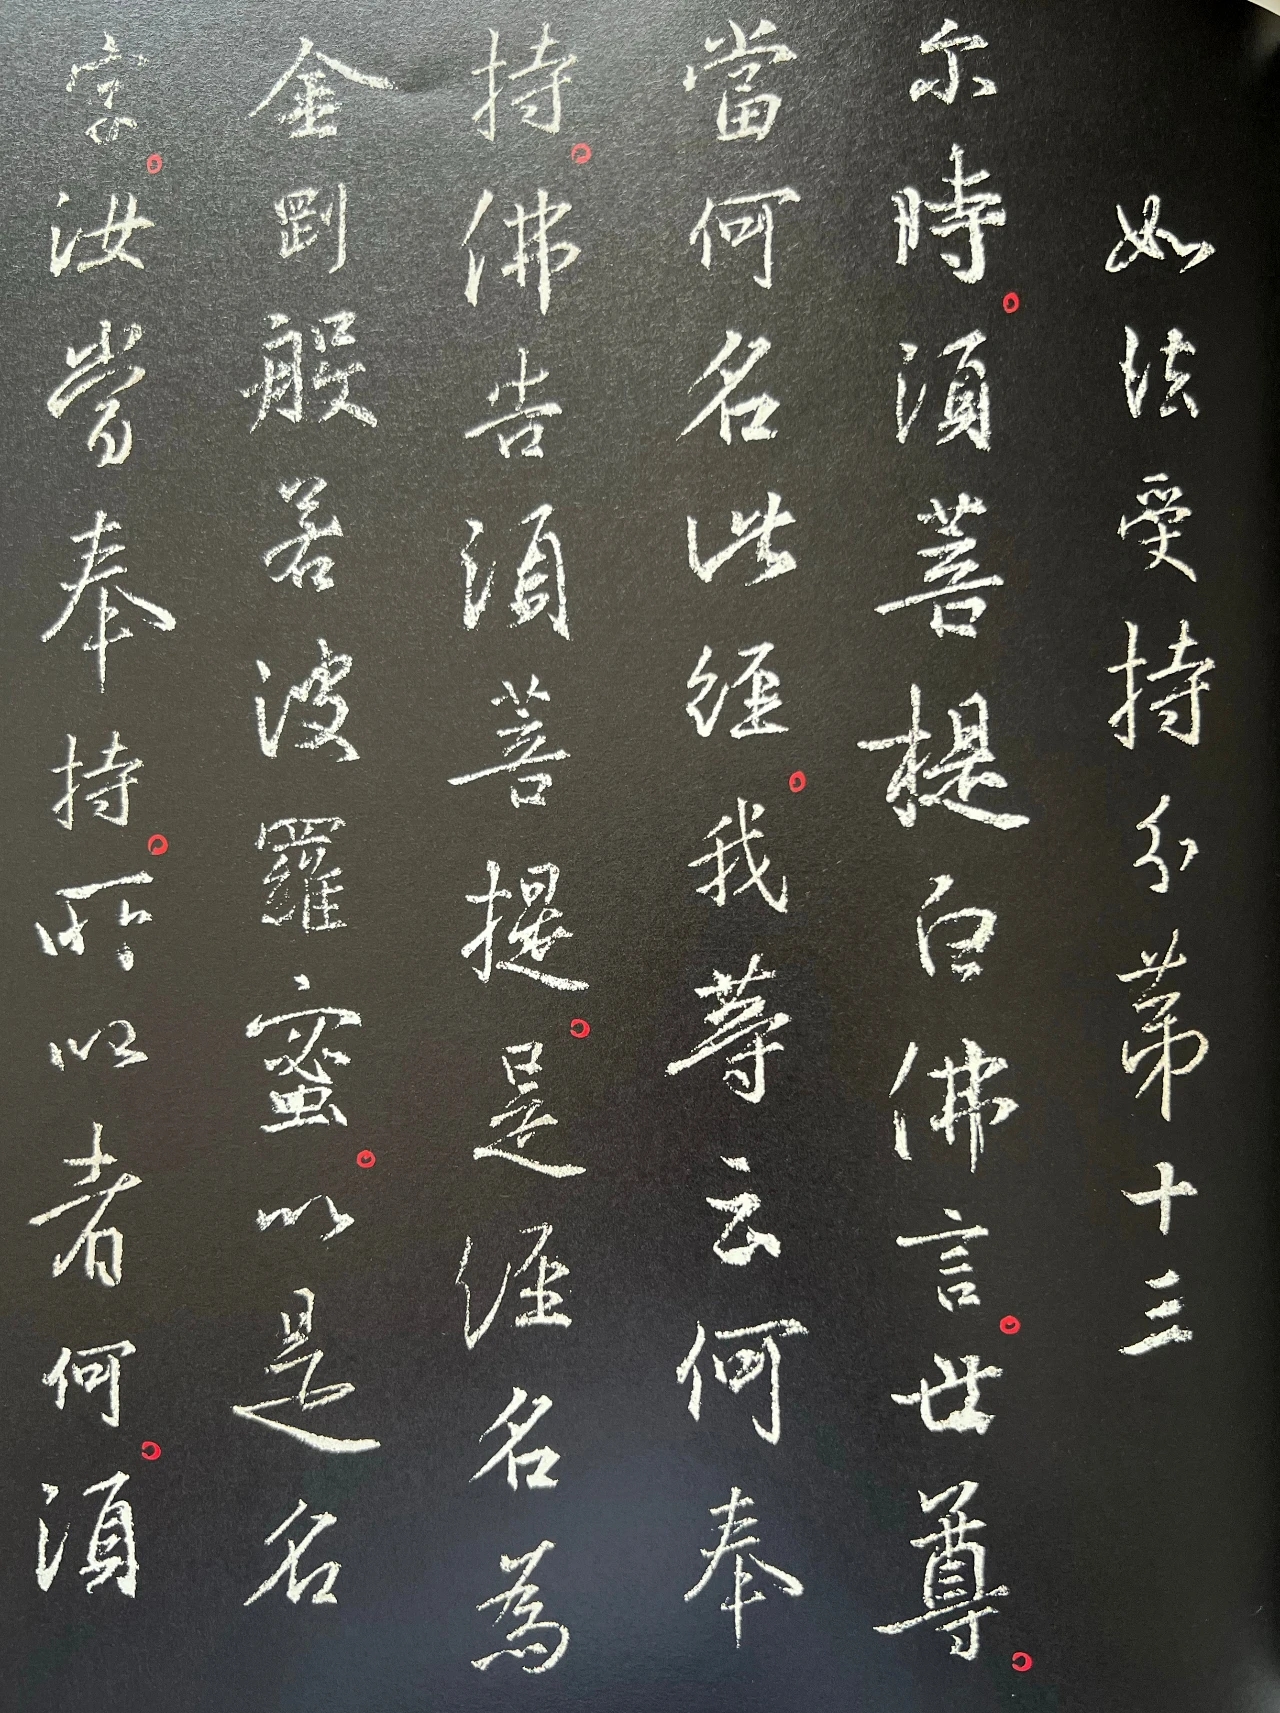 如法受持分第十三
尔時。須菩提白佛言。世尊。
當何名此經。我等云何奉
持。佛告須菩提。是經名為
金剛般若波羅蜜。以是名
字。汝當奉持。所以者何。須